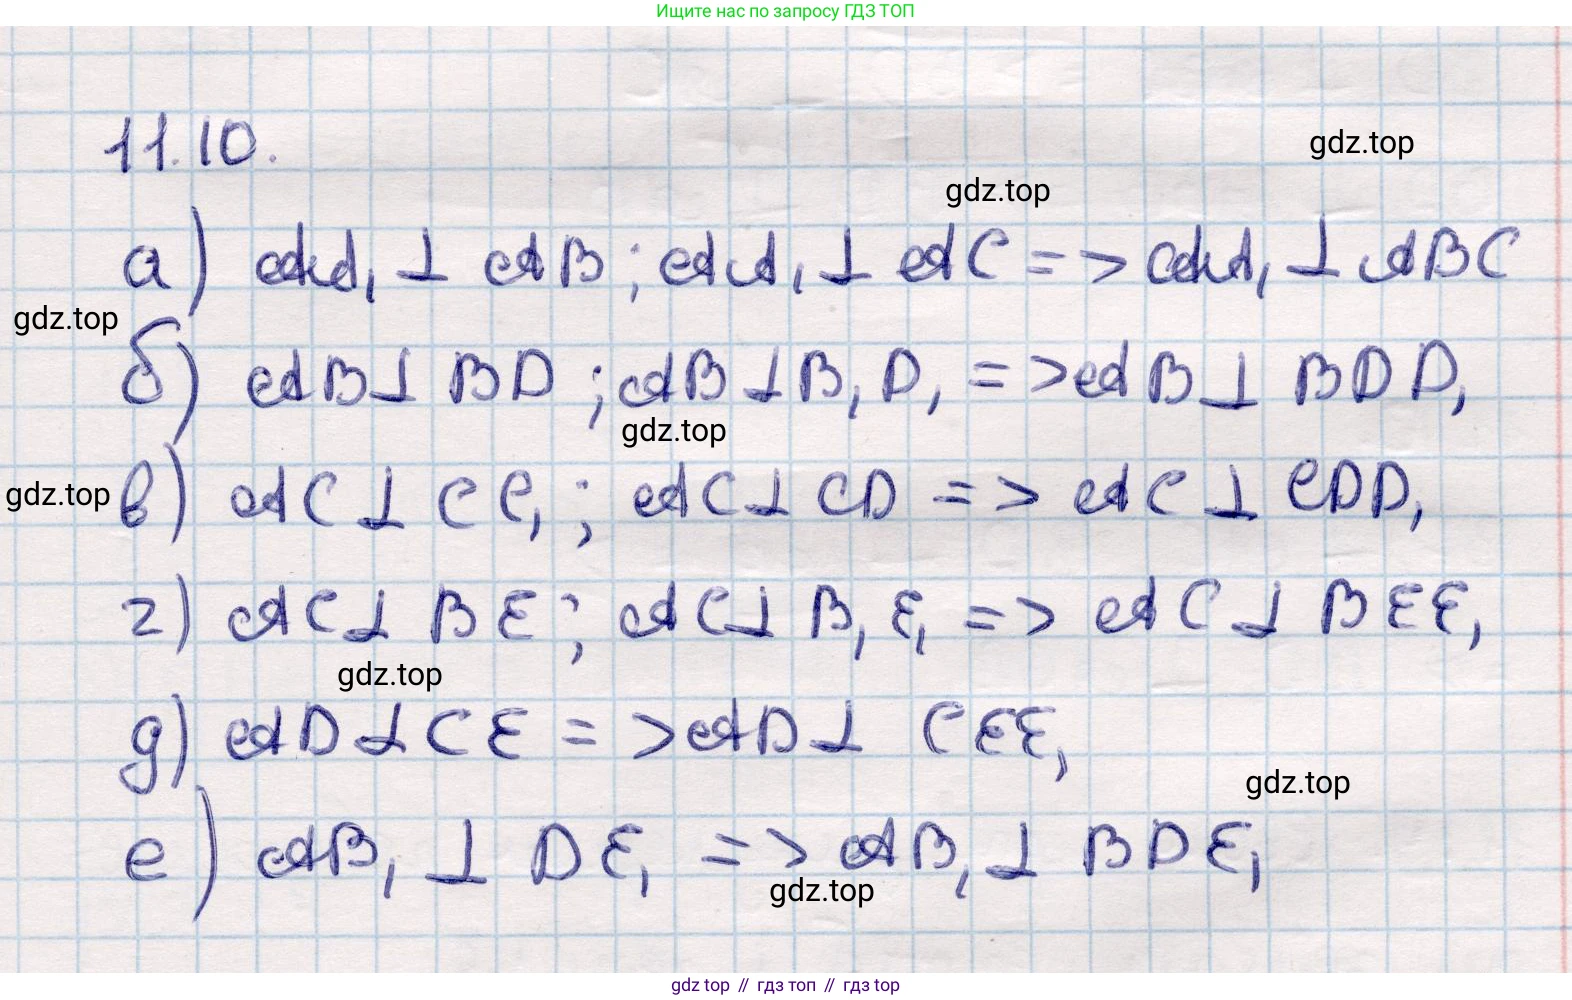 Ищите нас по запросу ГДЗ ТОП
11.10.
gdz.top
gdz.top
а) AA₁ ⊥ AB; AA₁ ⊥ AC => AA₁ ⊥ ABC
gdz.top
б) AB ⊥ BD; AB ⊥ B₁D₁ => AB ⊥ BDD₁
gdz.top
gdz.top
в) AC ⊥ CC₁; AC ⊥ CD => AC ⊥ CDD₁
г) AC ⊥ BE; AC ⊥ B₁E₁ => AC ⊥ BEE₁
gdz.top
д) AD ⊥ CE => AD ⊥ CEE₁
gdz.top
е) AB₁ ⊥ DE₁ => AB₁ ⊥ BDE₁
gdz.top
gdz.top // гдз топ // гдз.top